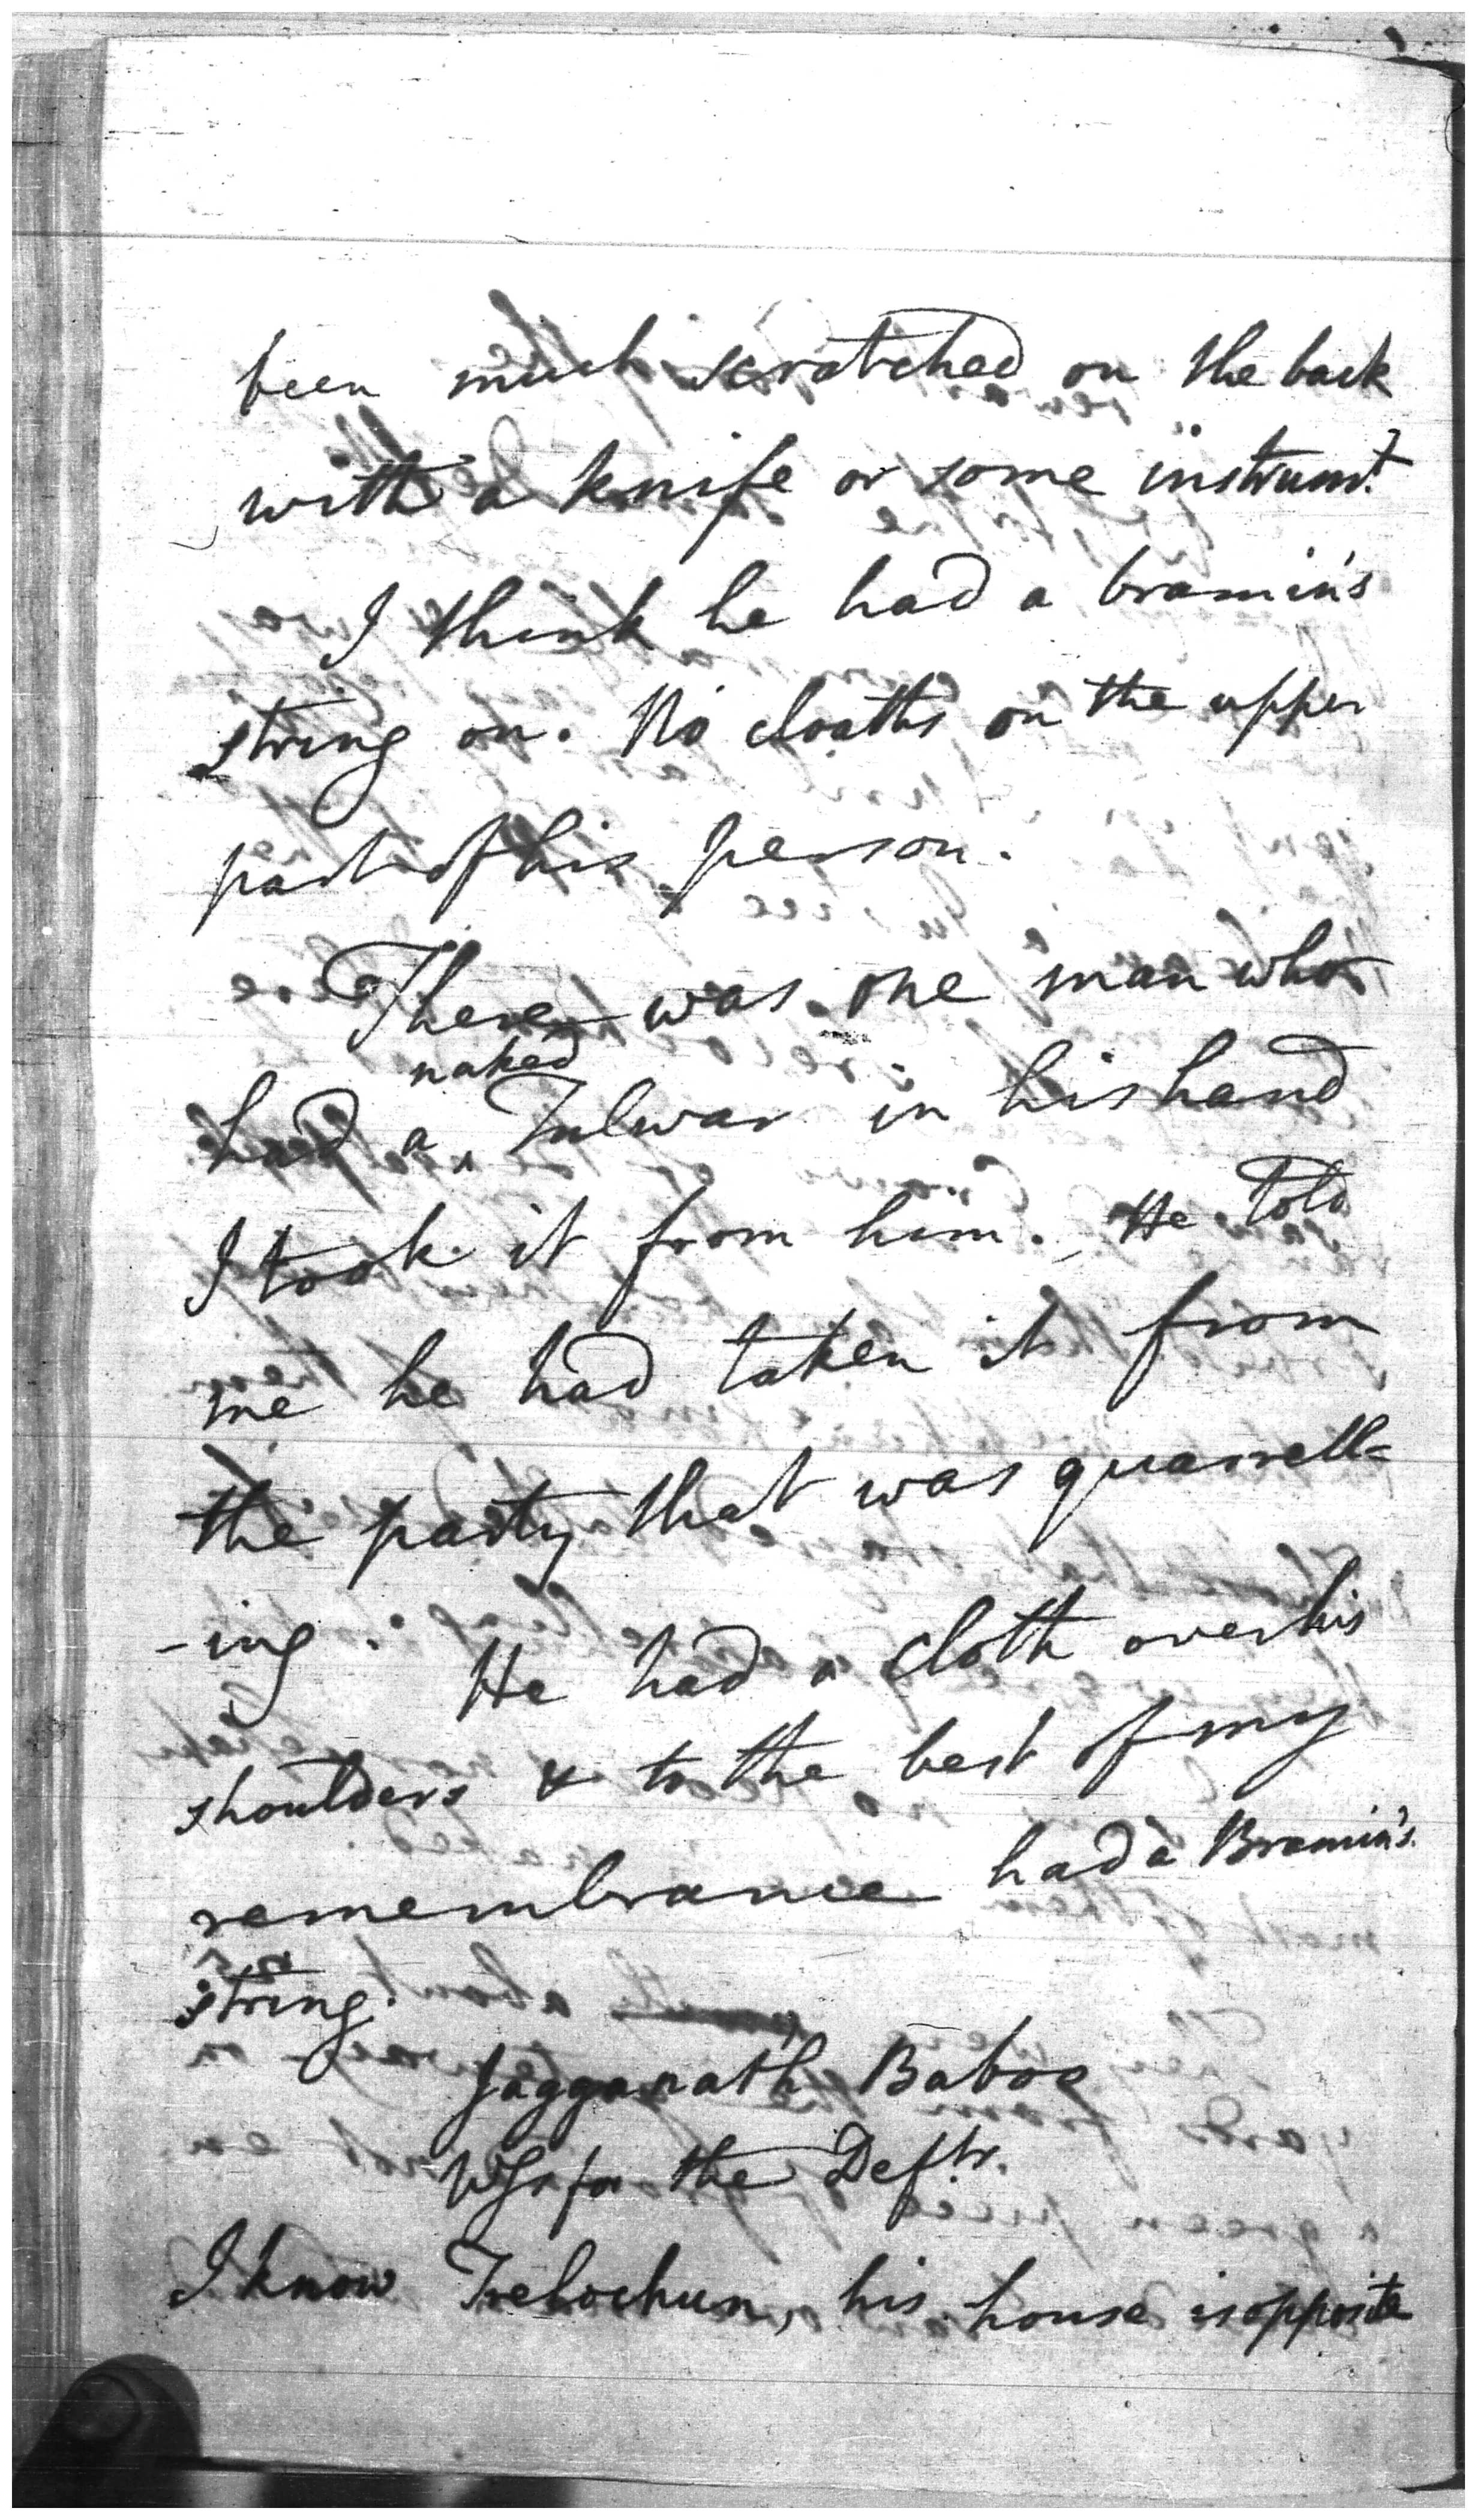 been much scratched on the back
with a knife or some instrumt.
I think he had a bramin's
string on. No cloaths on the upper
part of his person.
There was one man who
naked
had a ‸ Tulwar in his hand
I took it from him. He told
me he had taken it from
the party that was quarrell=
-ing. He had a cloth over his
shoulders & to the best of my
remembrance had a Bramin's
string.
Jagganath Baboe
for the Deft.
I know Trelochun, his house is opposite